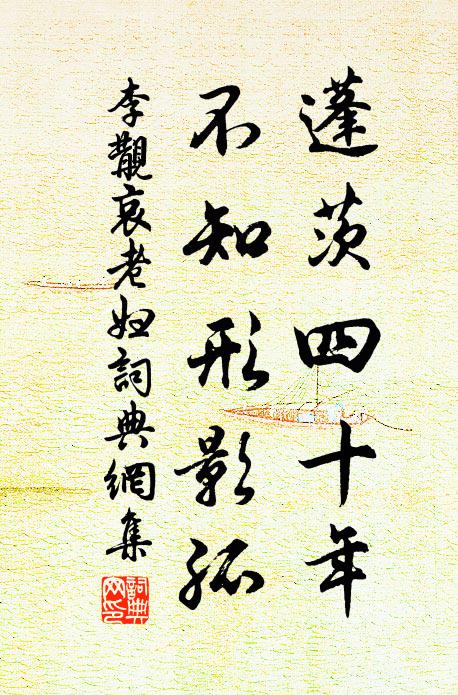 蓬茨四十年
不知形影孤
李觀哀老妇詞典網集
詞典网印